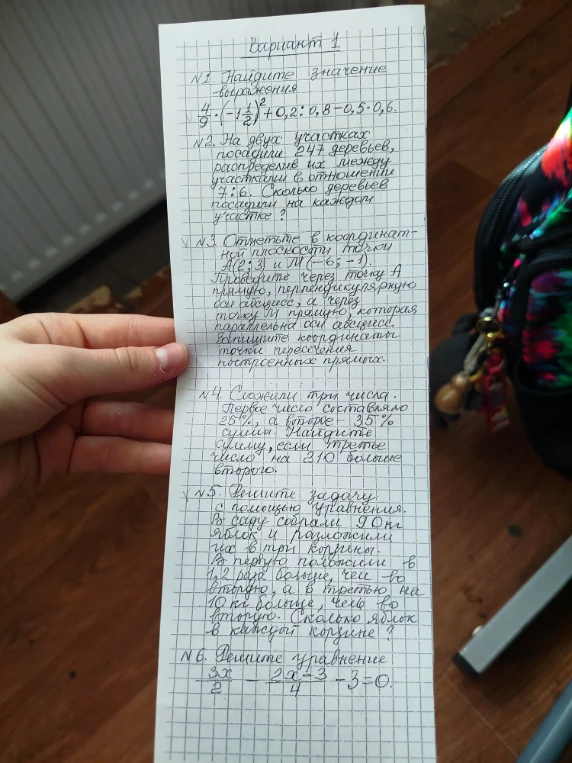 Вариант 1
N1. Найдите значение
выражения
4/9 · (-1 1/2)² + 0,2 : 0,8 - 0,5 · 0,6.
N2. На двух участках
посадили 247 деревьев,
распределив их между
участками в отношении
7:6. Сколько деревьев
посадили на каждом
участке?
N3. Отметьте в координат-
ной плоскости точки
А(2; 3) и М(-6; -1).
Проведите через точку А
прямую, перпендикулярную
оси абсцисс, а через
точку М прямую, которая
параллельна оси абсцисс.
Запишите координаты
точки пересечения
построенных прямых.
N4. Сложили три числа.
Первое число составляло
25%, а второе - 35%
суммы. Найдите
сумму, если третье
число на 210 больше
второго.
N5. Решите задачу
с помощью уравнения.
В саду собрали 90 кг
яблок и разложили
их в три корзины.
В первую положили в
1,2 раза больше, чем во
вторую, а в третью на
10 кг больше, чем во
вторую. Сколько яблок
в каждой корзине?
N6. Решите уравнение
3x/2 - 2x-3/4 - 3 = 0.